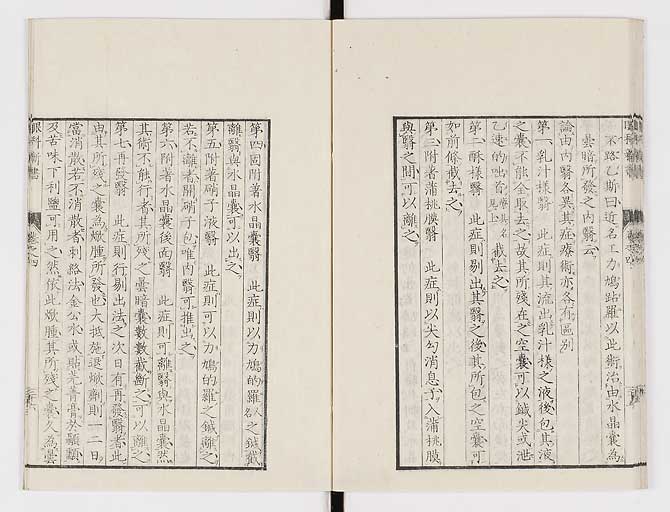 不路乙斯曰近名工力鳩路羅以此術治由水晶囊為
曇暗所發之內翳云
論由內翳各異其症療術亦各有區別
第一乳汁様翳 此症則其流出乳汁様之液後包其液
之囊不能全取去之故其所殘在之空囊可以鍼尖或泄
乙速的咄首療具名見上截去之
第二酥様翳 此症則剔出其翳之後其所包之空囊可
如前條截去之
第三附著蒲桃膜翳 此症則以尖勾消息子入蒲桃膜
與翳之間可以離之
第四固附著水晶囊翳 此症則以力鳩的羅以之鍼截
離翳與水晶囊可以出之
第五附著硝子液翳 此症則可以力鳩的羅之鍼離之
若不離者開硝子包唯內翳可推出之
第六附著水晶囊後面翳 此症則可離翳與水晶囊然
其術不能行者其所殘之曇暗囊數數截斷之可以離之
第七再發翳 此症則行剔出法之次日有再發翳者此
由其所殘之囊為焮腫所發也大抵施退焮劑則一二日
當消散若不消散者刺絡法金公水或貼芫青膏於顳顬
及苦味下利鹽可用之然依此焮腫其所殘之囊久為曇
眼科新書
卷之四